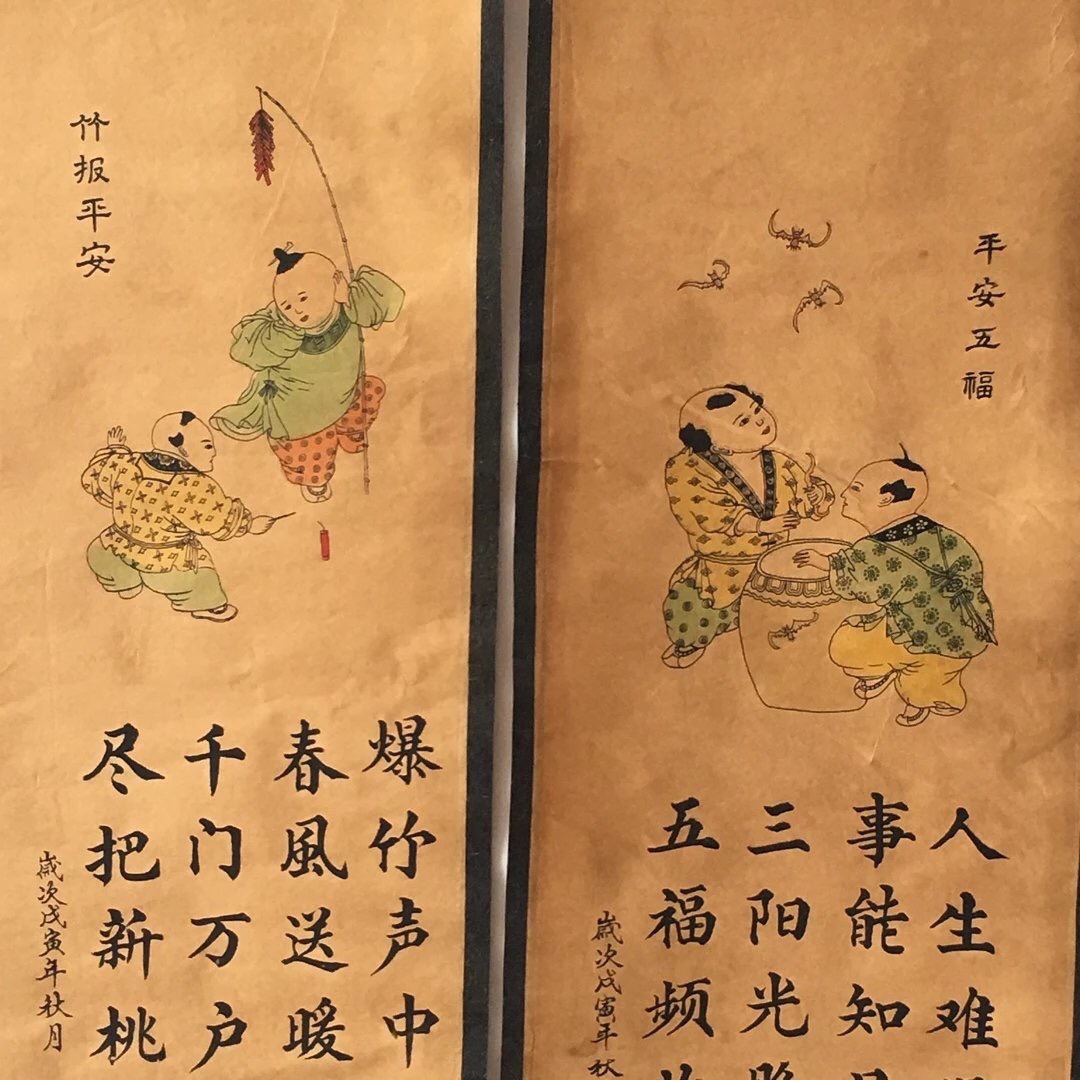 竹报平安
爆竹声中
春風送暖
千门万户
尽把新桃
歲次戊寅年秋月
平安五福
人生难
事能知
三阳光
五福频
歲次戊寅年秋